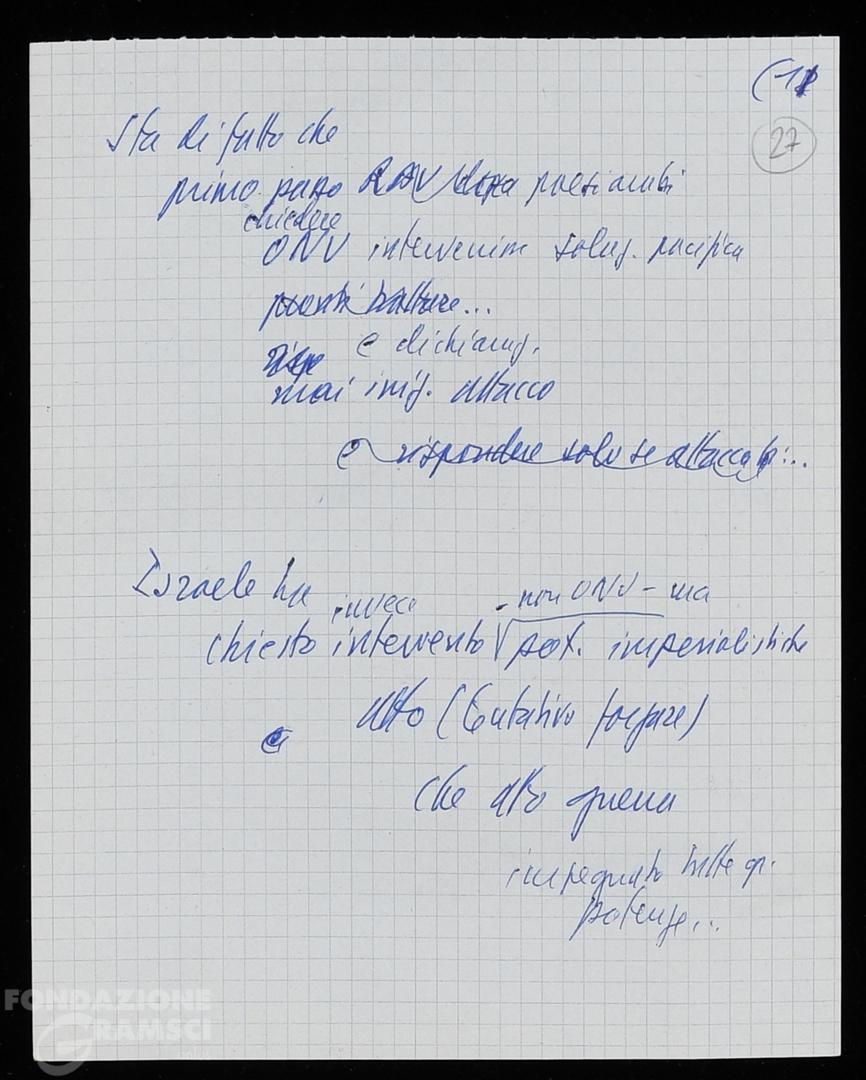 (11
27
Sta di fatto che
primo passo RAU paesi arabi
chiedere
ONU intervenim soluz. pacifica
pronti trattare...
e dichiaraz.
mai iniz. attacco
e rispondere solo se attaccati...
Israele ha
invece - non ONU - ma
chiesto intervento pot. imperialistiche
atto (tentativo forzare)
e
che atto guerra
impegnato tutte gr.
potenze...
FONDAZIONE
GRAMSCI